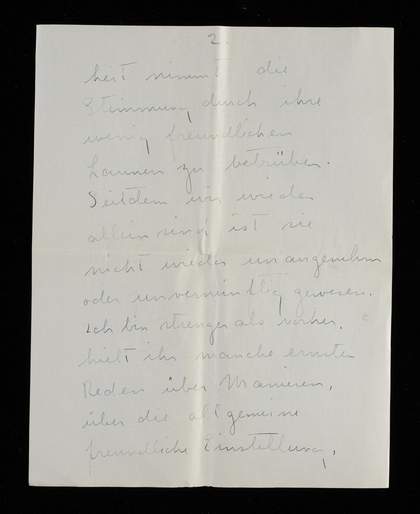 2
heit nimmt die
Stimmung durch ihre
wenig freundlichen
Launen zu betrüben.
Seitdem wir wieder
allein sind ist sie
nicht wieder unangenehm
oder unvernünftig gewesen.
Ich bin strenger als vorher,
hielt ihr manche ernste
Reden über Manieren,
über die allgemeine
freundliche Einstellung,